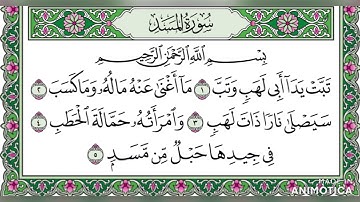 سُورَةُ المَسَدِ
بِسْمِ اللَّهِ الرَّحْمَٰنِ الرَّحِيمِ
تَبَّتْ يَدَا أَبِي لَهَبٍ وَتَبَّ ١ مَا أَغْنَىٰ عَنْهُ مَالُهُ وَمَا كَسَبَ ٢
سَيَصْلَىٰ نَارًا ذَاتَ لَهَبٍ ٣ وَامْرَأَتُهُ حَمَّالَةَ الْحَطَبِ ٤
فِي جِيدِهَا حَبْلٌ مِّن مَّسَدٍ ٥
MADE IN
ANIMOTICA